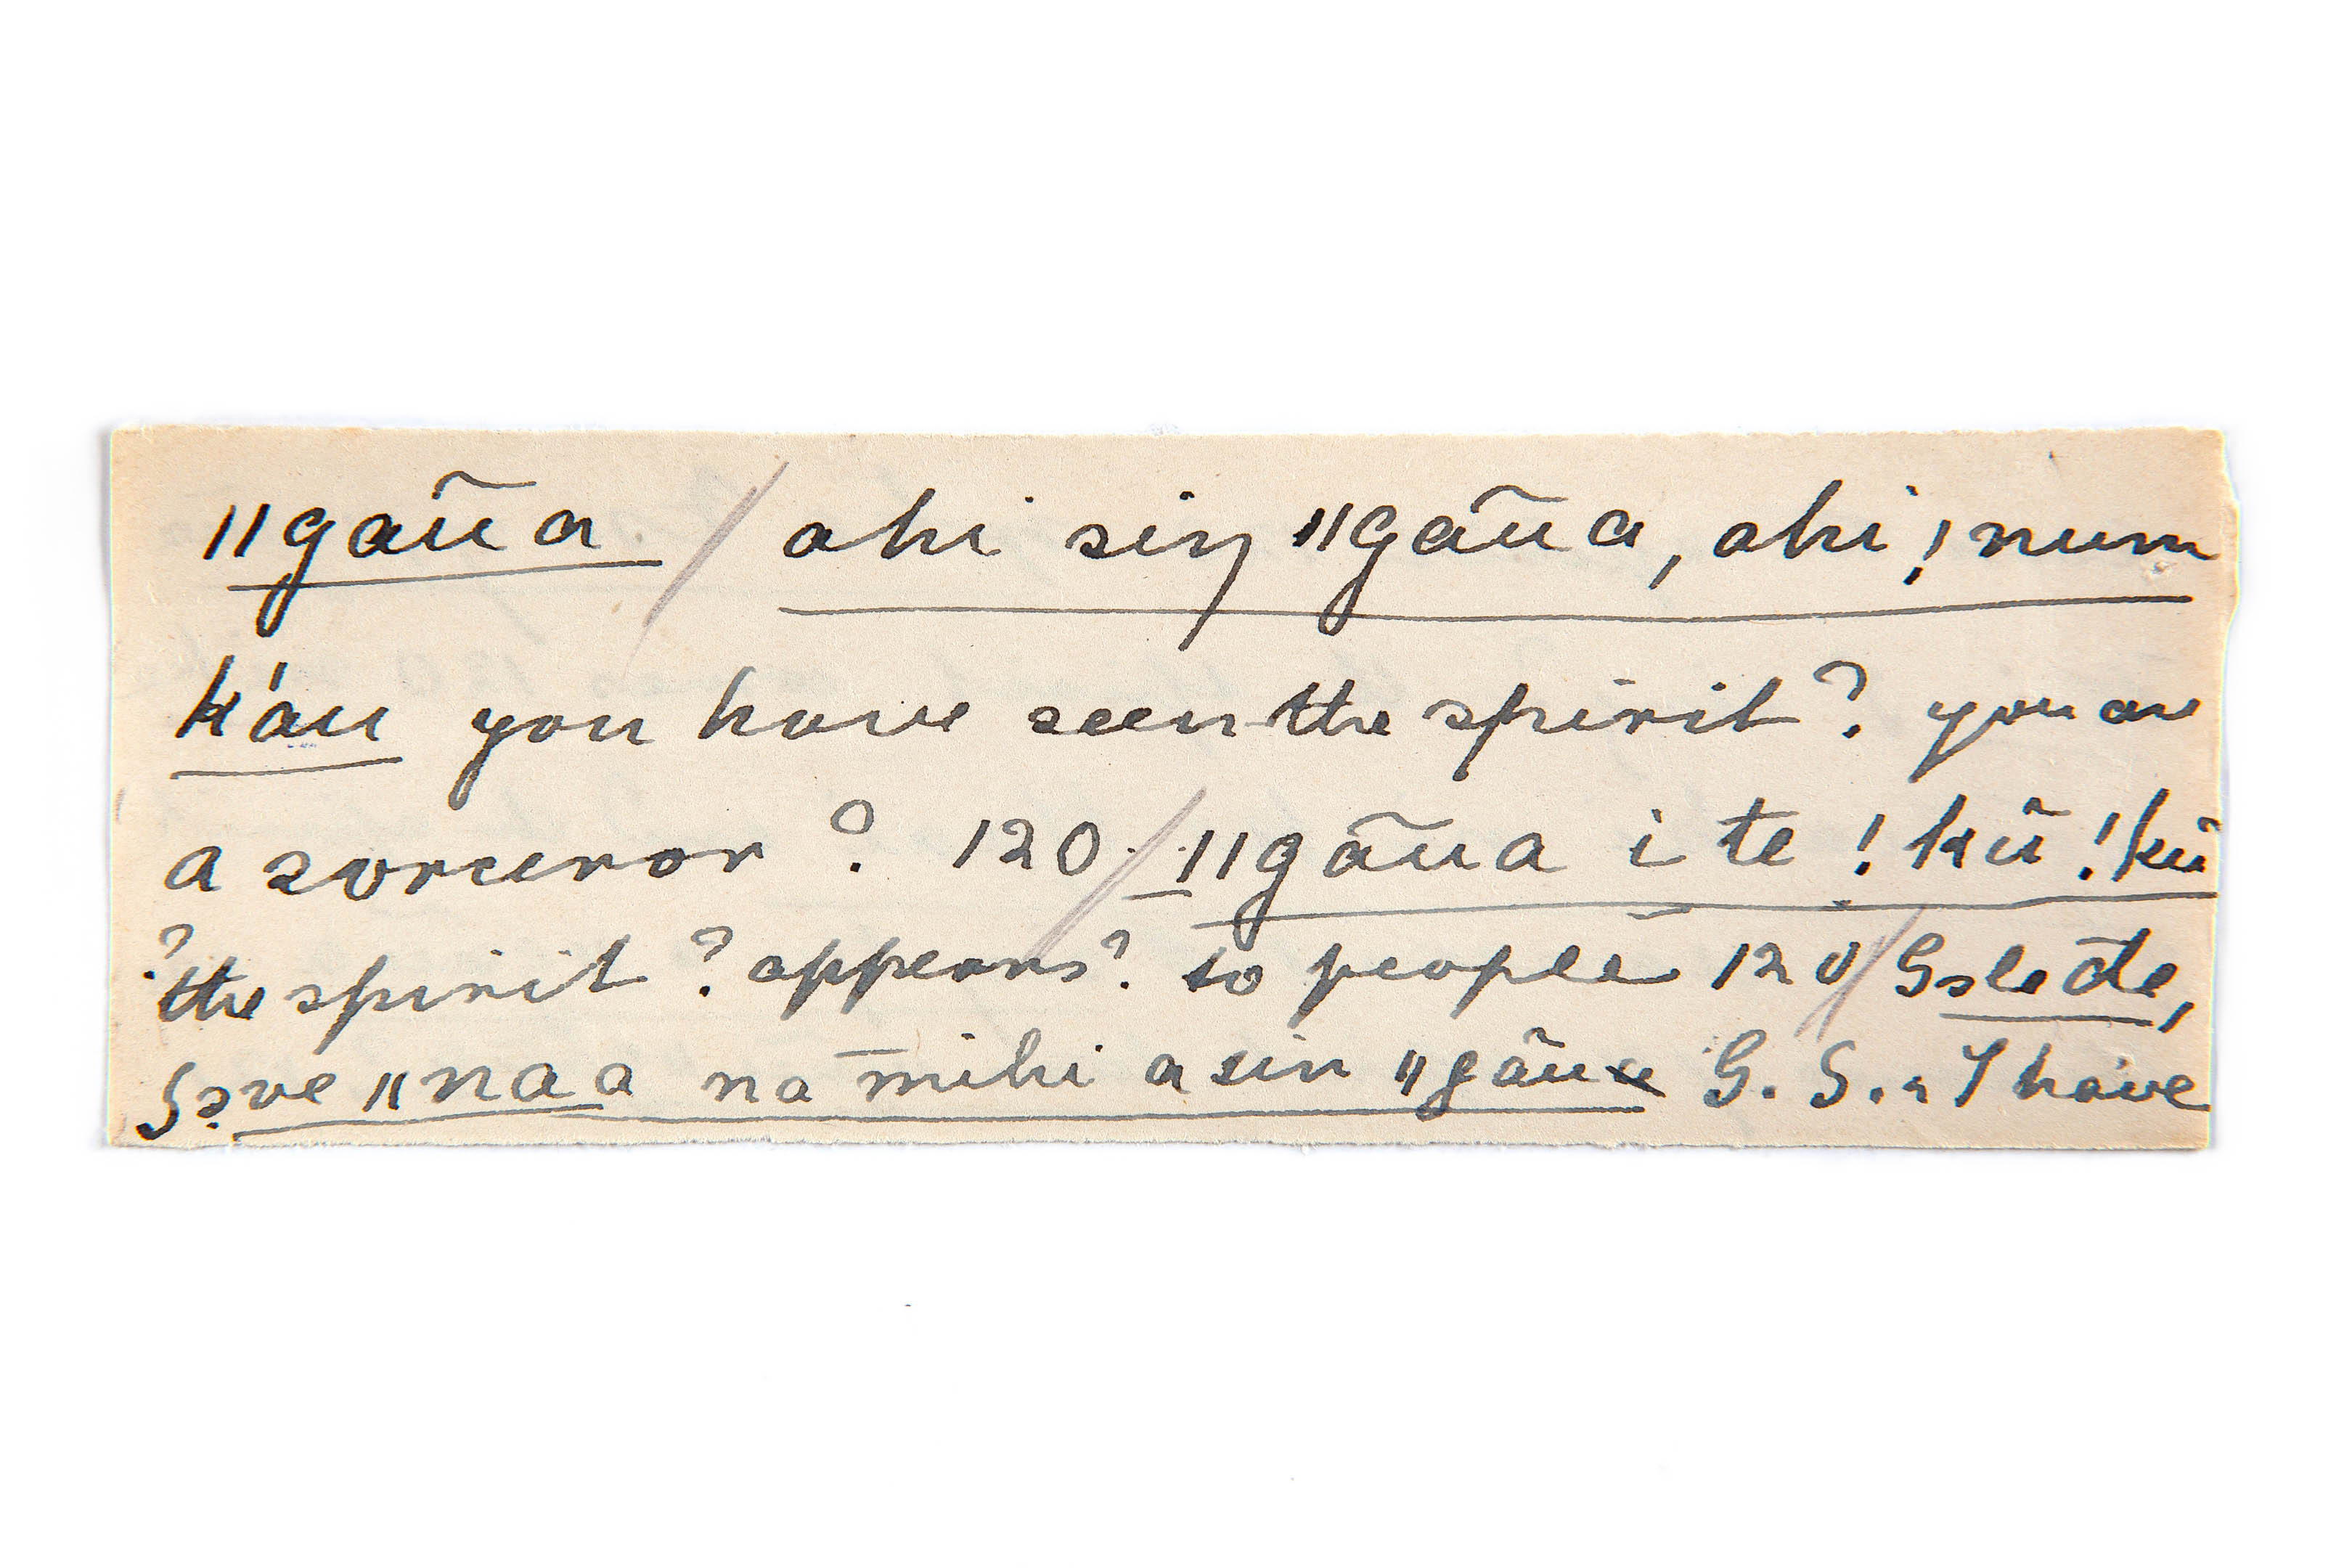 ǁgaũa / ahi siŋ ǁgaũa, ahi ! num
k'au you have seen the spirit? you are
a sorceror ? 120. / ǁgaũa i te ! kũ ! kũ
? the spirit ? appears? to people 120 / Gsle õle,
Gsve ǁnaa na mihi a sin ǁgaũa G. G. , I have